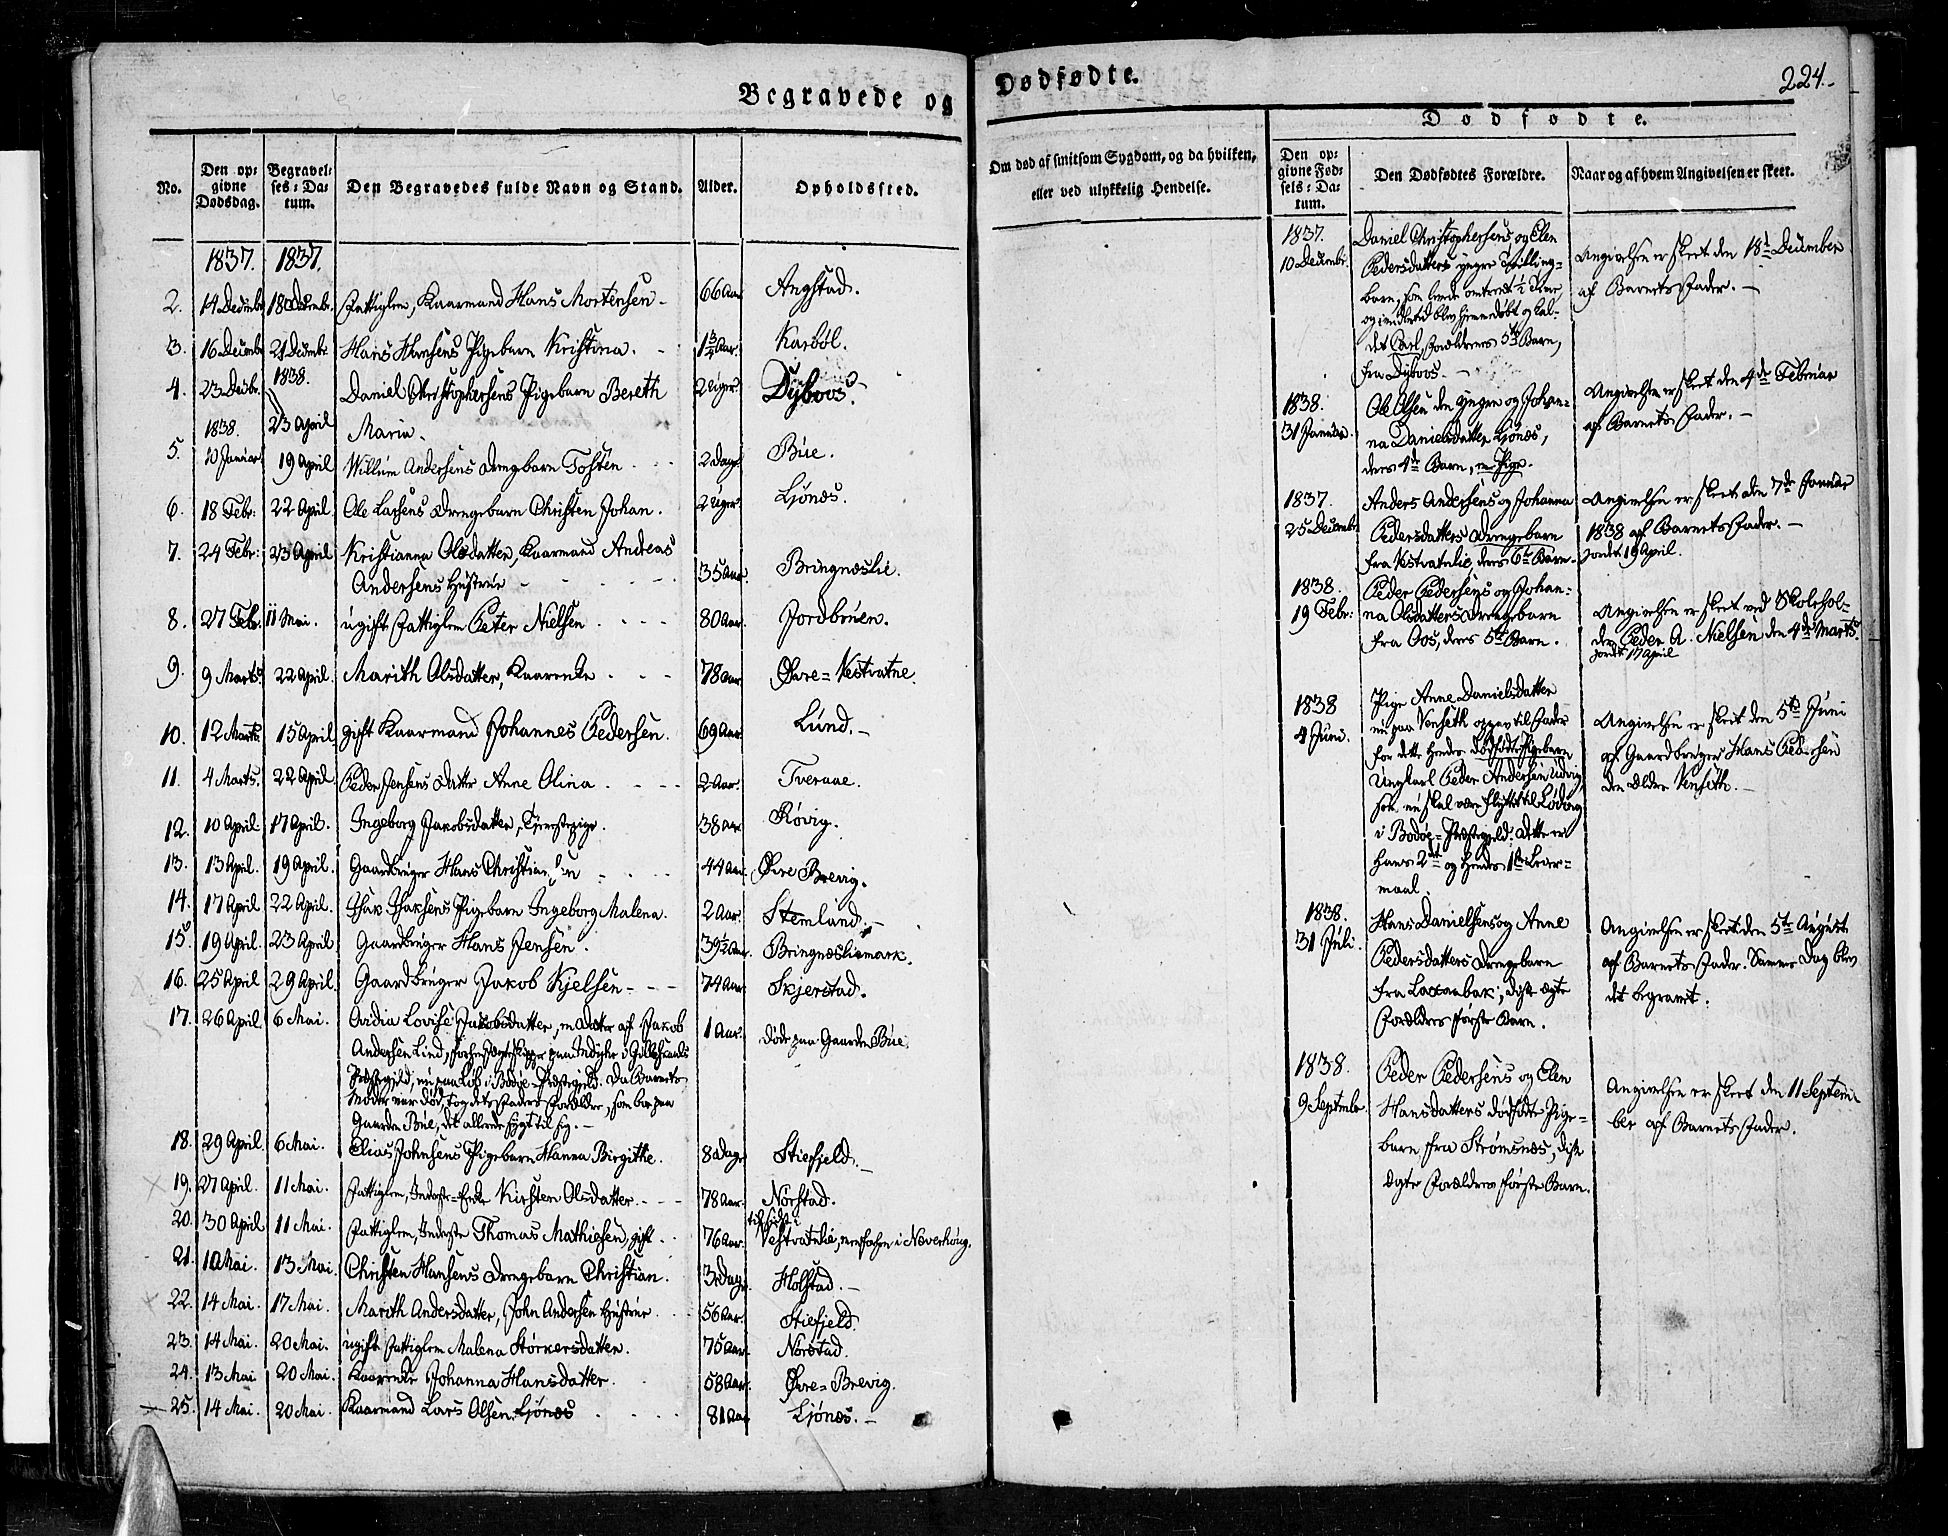 Begravede og
No.
Den op-
givne
Dødsdag.
Begravel-
ses-Da-
tum.
Den Begravedes fulde Navn og Stand.
Alder.
Opholdssted.
1837. 1837.
2. 14 Decembr 18 Decembr. Fattiglem, Kaarmand Hans Mortensen - 66 Aar Angstad.
3. 16 Decembr 21 Decembr Hans Hansens Pigebarn Kristina. - 1¾ Aar. Karbøl.
1838.
4. 23 Decbr. 23 April Daniel Christophersens Pigebarn Bereth 2 Uger. Dybvos.
Maria.
1838.
5. 10 Januar 19 April Willum Andersens Drengebarn Tosten 2 Dage Bue.
6. 18 Febr: 22 April. Ole Larsens Drengebarn Christen Johan. 2 Uger. Ljønes.
7. 24 Febr: 23 April Kristianna Olsdatter, Kaarmand Andreas
Andersens Hustrue - 35 Aar Bringnæslie.
8. 27 Feb. 11 Mai. ugift Fattiglem Peter Nielsen 80 Aar. Jordbruen.
9. 9 Marts. 22 April. Marith Olsdatter, Kaarenke 78 Aar Øvre=Vestvatne.
10. 12 Marts. 15 April gift Kaarmand Johannes Pedersen. 69 Aar Lund. -
11. 4 Marts. 22 April Peder Jensens Datter Anne Olina 2 Aar. Tveraae.
12. 10 April. 17 April. Ingeborg Jakobsdatter, Tjenestepige. 38 Aar Røvig.
13. 13 April. 19 April. Gaardbruger Hans Christiansen 44 Aar Øvre Brevig.
14. 17 April 22 April. Isak Isaksens Pigebarn Ingeborg Malena. 2 Aar. Stemland. -
15. 19 April. 23 April Gaardbruger Hans Jensen. 39½ Aar. Bringnæsliemark.
16. 25 April 29 April. Gaardbruger Jakob Kjelsen - 74 Aar Skjerstad.
17. 26 April. 6 Mai. Ovidia Lovise Jakobsdatter, en Datter af Jakob 1 Aar. Døde paa Gaarden Bue.
Andersen Lind, paa Indyhr i Gilleskaals
Præstegjeld, nu paa Løb i Bodøe=Præstegjeld. Da Barnets
Moder var død, tog dets Faders Forældre, som boe paa
Gaarden Bue, det allerede spædt til sig. -
18. 29 April. 6 Mai. Elias Johnsens Pigebarn Hanna Birgithe. 8 Dage Stiefjeld. -
19. 27 April. 11 Mai. Fattiglem, Inderste=Enke Kirsten Olsdatter 78 Aar. Norstad.
tilsidst i
20. 30 April 11 Mai. Fattiglem, Inderste Thomas Mathiesen, gift 76 Aar. Vestvatnlie, men før i Næverhoug.
21. 10 Mai. 13 Mai. Christen Hansens Drengebarn Christian. 3 Dage Holstad. -
22. 14 Mai. 17 Mai. Marith Andersdatter, John Andersen Hustrue 56 Aar. Stiefjeld.
23. 14 Mai. 20 Mai. ugift Fattiglem Malena Størkersdatter. 75 Aar. Norstad.
24. 13 Mai 20 Mai. Kaarenke Johanna Hansdatter 58 Aar. Øvre=Brevig.
25. 14 Mai. 20 Mai. Kaarmand Lars Olsen Ljønes 81 Aar Ljønes. -
Dødfødte.
224.
Om død af smitsom Sygdom, og da hvilken,
eller ved ulykkelig Hendelse.
Dødfødte.
Den op-
givne Fød-
sels-Da-
tum.
Den Dødfødtes Forældre.
Naar og af hvem Angivelsen er skeet.
1837.
10 Decembr.
Daniel Christophersens og Elen
Pedersdatters yngre Tvilling-
Barn, som levde omtrent ½ Time,
og imidlertid blev hjemmedøbt og kal-
det Carl, Forældrenes 5te Barn,
fra Dybvos. -
Angivelsen er skeet den 18de December
af Barnets Fader. -
1838.
31 Januar.
Ole Olsen den yngre og Johan-
na Danielsdatter Ljønes,
deres 4de Barn, en Pige.
Angivelsen er skeet den 4de Februar
af Barnets Fader. -
1837.
25 Decembr
Anders Andersens og Johanna
Pedersdatters Drengebarn
fra Vestvatnlie, deres 6te Barn.
Angivelsen er skeet den 7de Januar
1838 af Barnets Fader. -
jordet 19 April.
1838.
19 Febr:
Peder Pedersens og Johan-
na Olsdatters Drengebarn
fra Oos, deres 5te Barn.
Angivelsen er skeet ved Skolehol-
der Peder A. Nielsen den 4de Marts.
jordet 17 April
1838
4 Juni.
Pige Anne Danielsdatter
nu paa Vensæth opgav til Fader
for dette hendes dødfødte Pigebarn
Ungkarl Peder Andersen Udvig,
som nu skal være flyttet til Løding
i Bodøe=Præstegjeld. Dette er
Hans 2det og Hendes 1ste Leier-
maal.
Angivelsen er skeet den 5te Juni
af Gaardbruger Hans Pedersen
den Ældre Vensæth. -
1838.
31 Juli.
Hans Danielsens og Anne
Pedersdatters Drengebarn
fra Laxaabak, disse Ægte
Forældres første Barn.
Angivelsen er skeet den 5te August
af Barnets Fader. Samme Dag blev
det begravet.
1838.
9 Septembr.
Peder Pedersens og Elen
Hansdatters dødfødte Pige-
barn fra Strømsnæs, disse
Ægte Forældres første Barn.
Angivelsen er skeet den 11 Septem-
ber af Barnets Fader.